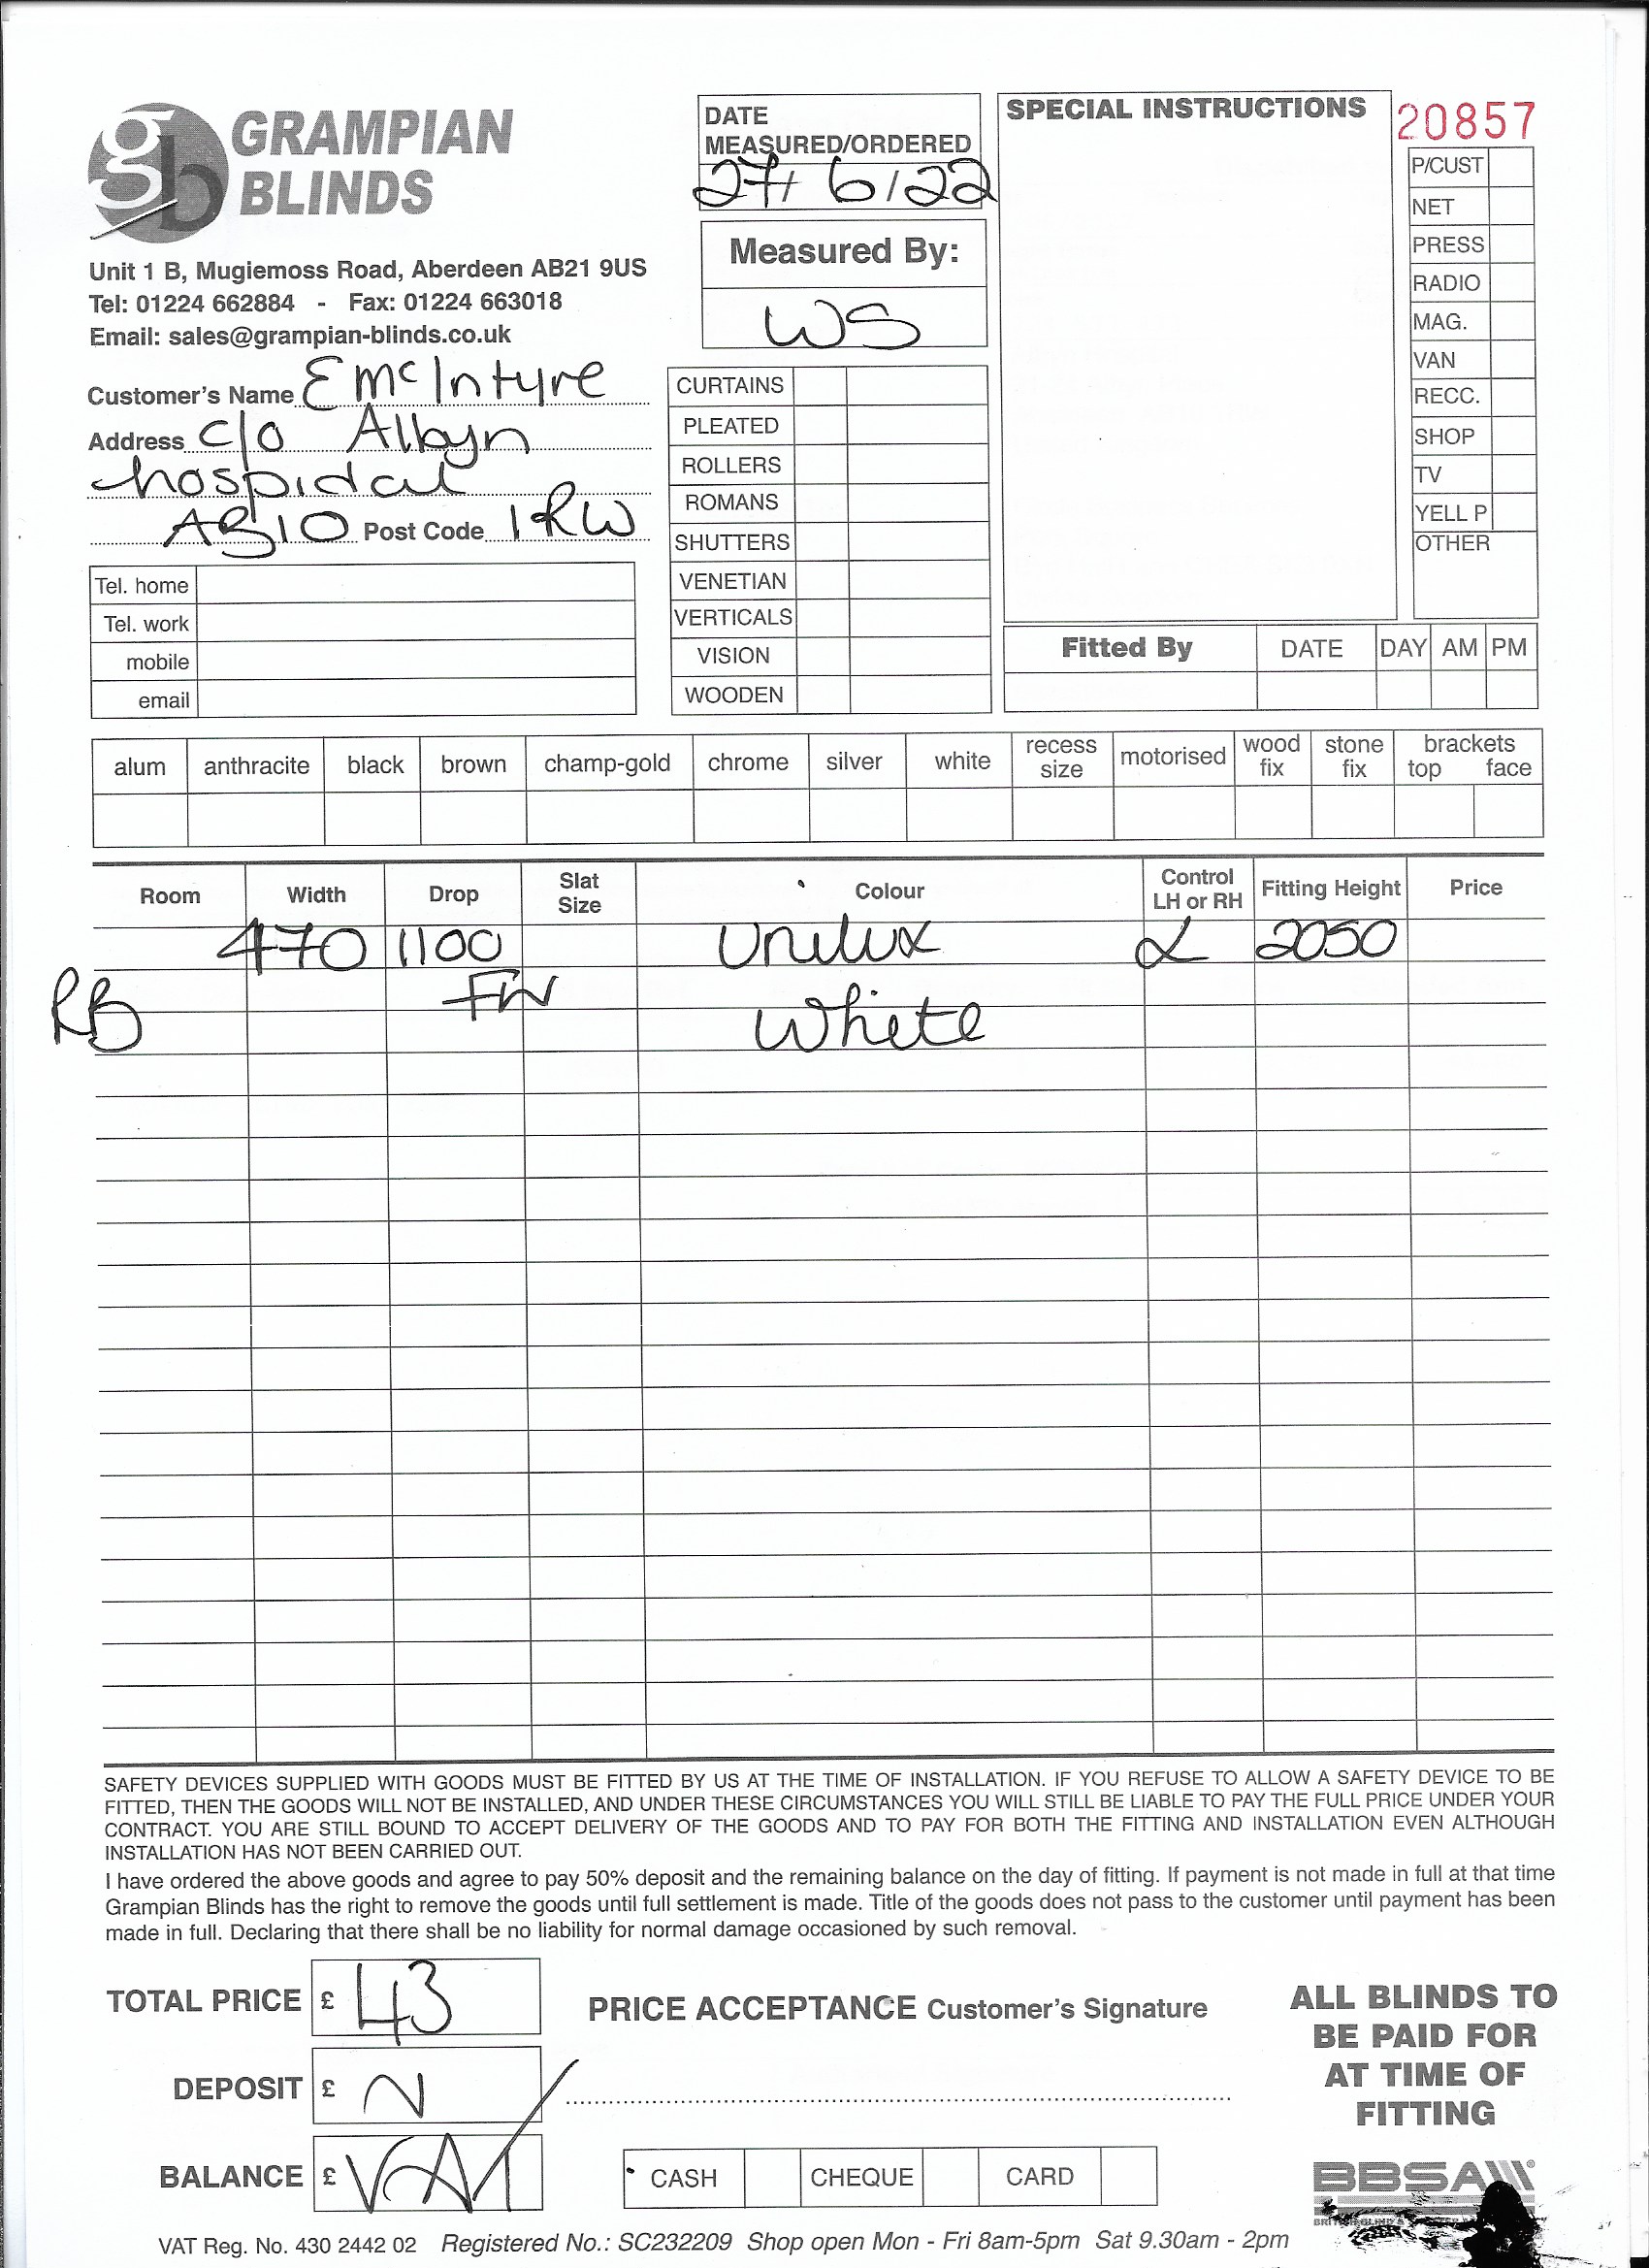 GRAMPIAN
BLINDS
Unit 1 B, Mugiemoss Road, Aberdeen AB21 9US
Tel: 01224 662884 - Fax: 01224 663018
Email: sales@grampian-blinds.co.uk
Customer's Name E McIntyre
Address c/o Albyn
hospidal
AB10 Post Code 1RW
Tel. home
Tel. work
mobile
email
DATE
MEASURED/ORDERED
27/6/22
Measured By:
WS
CURTAINS
PLEATED
ROLLERS
ROMANS
SHUTTERS
VENETIAN
VERTICALS
VISION
WOODEN
SPECIAL INSTRUCTIONS
20857
P/CUST
NET
PRESS
RADIO
MAG.
VAN
RECC.
SHOP
TV
YELL P
OTHER
Fitted By DATE DAY AM PM
alum anthracite black brown champ-gold chrome silver white recess size motorised wood fix stone fix brackets top face
Room Width Drop Slat Size Colour Control LH or RH Fitting Height Price
470 1100 Unilux L 2050
RB FW White
SAFETY DEVICES SUPPLIED WITH GOODS MUST BE FITTED BY US AT THE TIME OF INSTALLATION. IF YOU REFUSE TO ALLOW A SAFETY DEVICE TO BE
FITTED, THEN THE GOODS WILL NOT BE INSTALLED, AND UNDER THESE CIRCUMSTANCES YOU WILL STILL BE LIABLE TO PAY THE FULL PRICE UNDER YOUR
CONTRACT. YOU ARE STILL BOUND TO ACCEPT DELIVERY OF THE GOODS AND TO PAY FOR BOTH THE FITTING AND INSTALLATION EVEN ALTHOUGH
INSTALLATION HAS NOT BEEN CARRIED OUT.
I have ordered the above goods and agree to pay 50% deposit and the remaining balance on the day of fitting. If payment is not made in full at that time
Grampian Blinds has the right to remove the goods until full settlement is made. Title of the goods does not pass to the customer until payment has been
made in full. Declaring that there shall be no liability for normal damage occasioned by such removal.
TOTAL PRICE £ 43
DEPOSIT £ N
BALANCE £ VAT
PRICE ACCEPTANCE Customer's Signature
CASH CHEQUE CARD
ALL BLINDS TO
BE PAID FOR
AT TIME OF
FITTING
BBSA
VAT Reg. No. 430 2442 02 Registered No.: SC232209 Shop open Mon - Fri 8am-5pm Sat 9.30am - 2pm